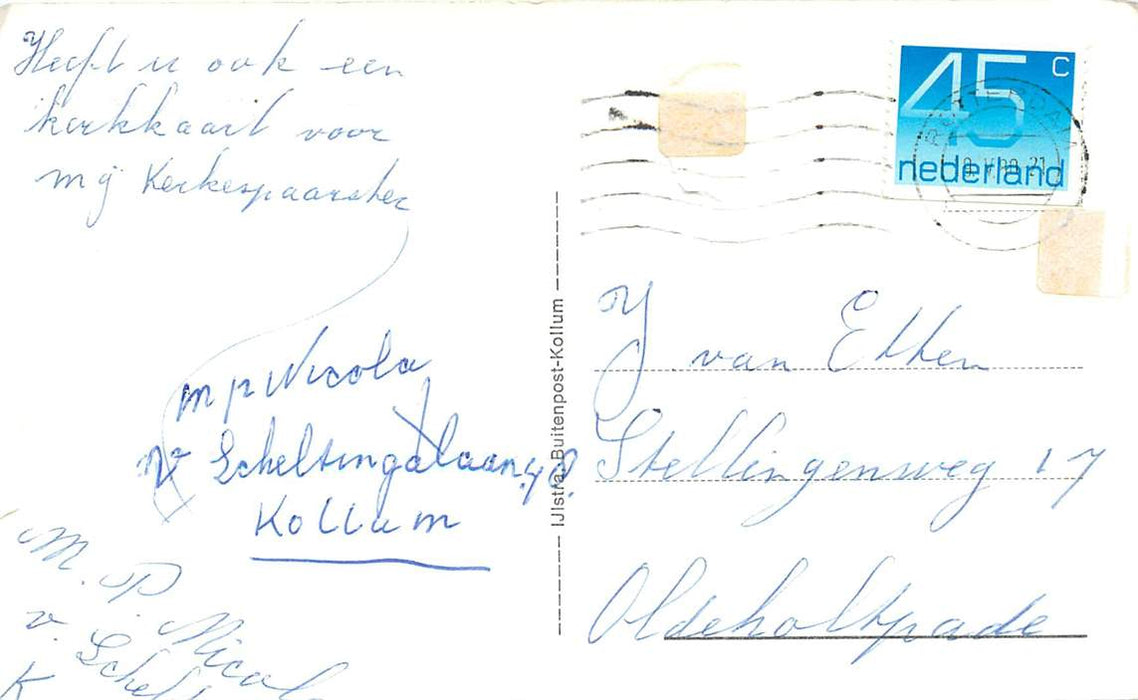 Heeft u ook een
kerkkaart voor
mij Kerkespaarster
M P Nicola
V Scheltingalaan 48.
Kollum
M. P. Nicol
v. Schelt
K
IJlstra-Buitenpost-Kollum
45 c
nederland
J van Etten
Stellingenweg 17
Oldeholtpade